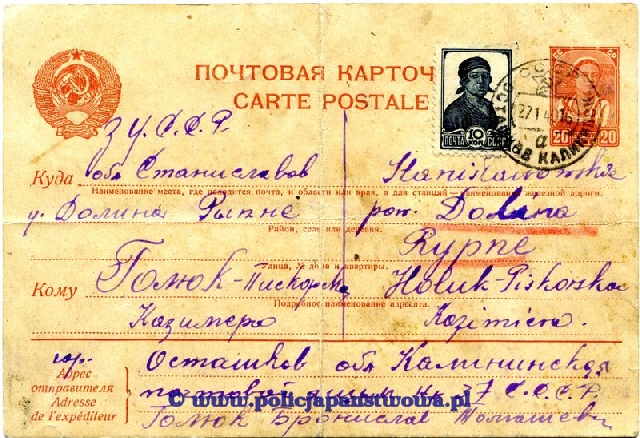 ПОЧТОВАЯ КАРТОЧ
CARTE POSTALE
ПОЧТА 10 КОП СССР
20 20
27 1 40 16
а
З У. С. С. Р.
Куда обл Станиславов Stanisławowskie
Наименование места, где находится почта, и области или края, а для станций – наименование железной дороги.
у. Долина Рыпне pow. Dolina
Район, село или деревня.
Rypne
Улица, № дома и квартиры.
Кому Голюк-Пискорска Hołuk-Piskorska
Подробное наименование адресата.
Казимера Kazimiera.
гор. Осташков обл Калининская
Адрес отправителя
Adresse de l'expéditeur
почтовый ящик № 37 С.С.С.Р.
© www.policjapanstwowa.pl
Голюк Бронислав